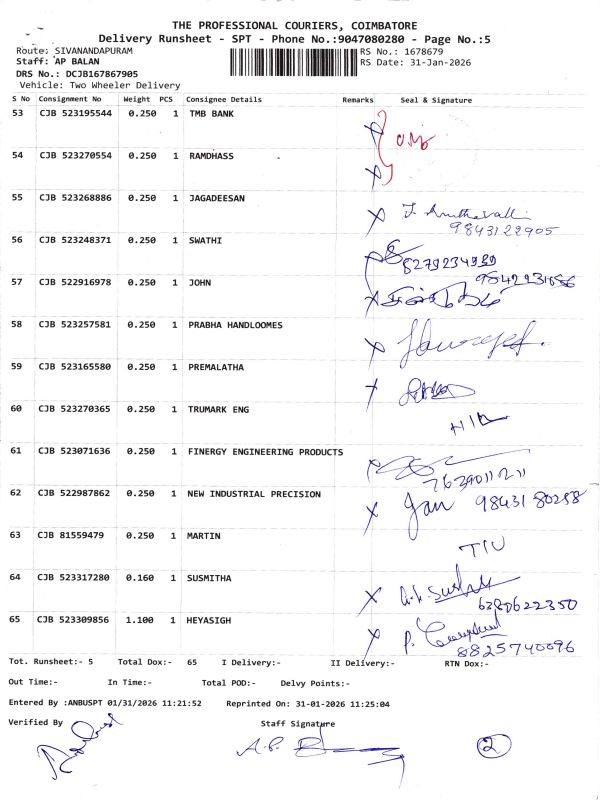 THE PROFESSIONAL COURIERS, COIMBATORE
Delivery Runsheet - SPT - Phone No.:9047080280 - Page No.:5
Route: SIVANANDAPURAM
RS No.: 1678679
Staff: AP BALAN
RS Date: 31-Jan-2026
DRS No.: DCJB167867905
Vehicle: Two Wheeler Delivery
S No Consignment No Weight PCS Consignee Details Remarks Seal & Signature
53 CJB 523195544 0.250 1 TMB BANK
54 CJB 523270554 0.250 1 RAMDHASS
55 CJB 523268886 0.250 1 JAGADEESAN
9843122905
56 CJB 523248371 0.250 1 SWATHI
8279234939
57 CJB 522916978 0.250 1 JOHN
9842231656
58 CJB 523257581 0.250 1 PRABHA HANDLOOMES
59 CJB 523165580 0.250 1 PREMALATHA
60 CJB 523270365 0.250 1 TRUMARK ENG
61 CJB 523071636 0.250 1 FINERGY ENGINEERING PRODUCTS
7639011211
62 CJB 522987862 0.250 1 NEW INDUSTRIAL PRECISION
Jan 9843180258
63 CJB 81559479 0.250 1 MARTIN
64 CJB 523317280 0.160 1 SUSMITHA
6380622350
65 CJB 523309856 1.100 1 HEYASIGH
8825740096
Tot. Runsheet:- 5 Total Dox:- 65 I Delivery:- II Delivery:- RTN Dox:-
Out Time:- In Time:- Total POD:- Delvy Points:-
Entered By :ANBUSPT 01/31/2026 11:21:52 Reprinted On: 31-01-2026 11:25:04
Verified By Staff Signature
2